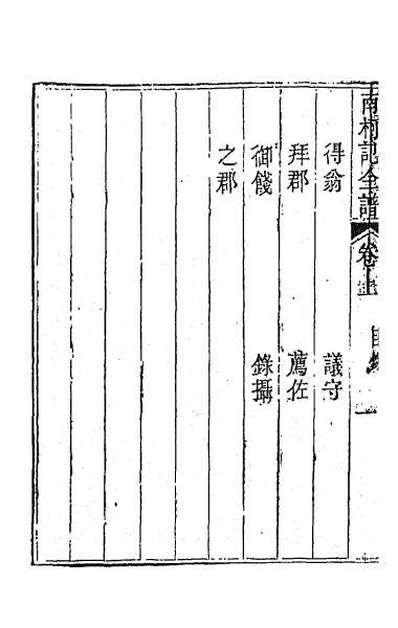 南柯記全譜 卷上 目錄 一
得翁 議守
拜郡 薦佐
御餞 錄攝
之郡